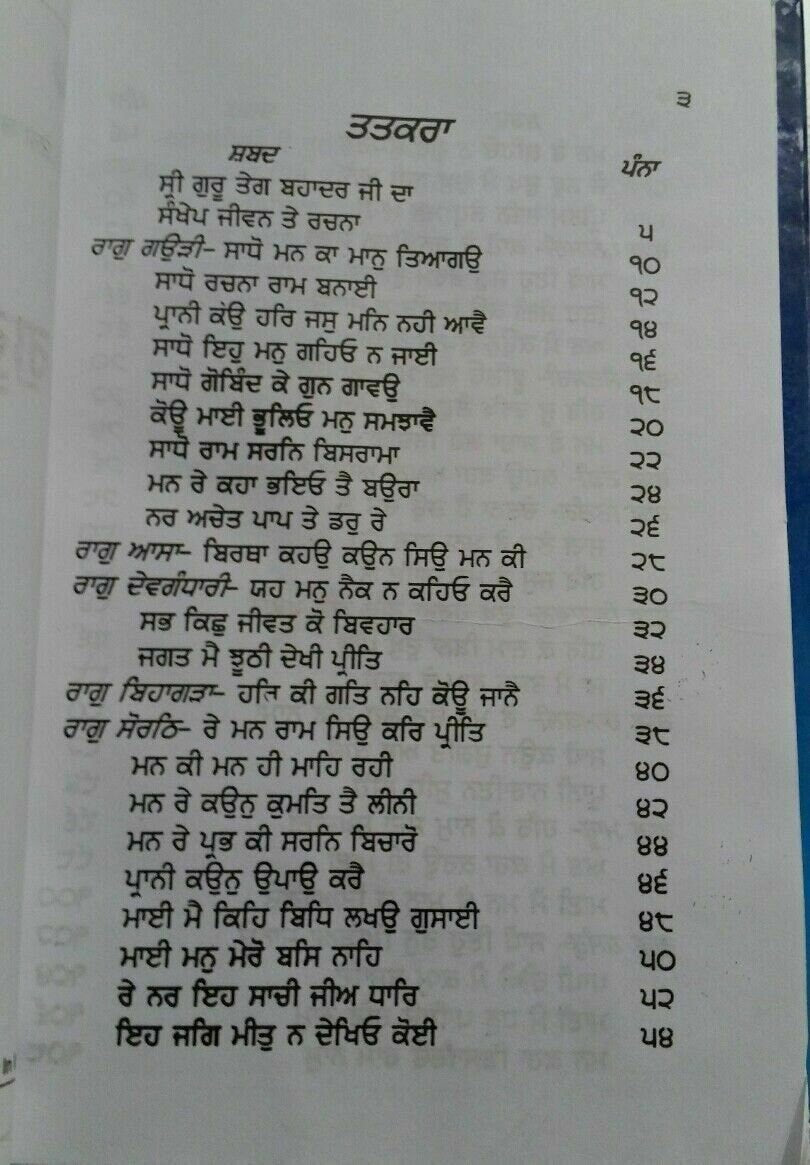 ੩
ਤਤਕਰਾ
ਸ਼ਬਦ ਪੰਨਾ
ਸ੍ਰੀ ਗੁਰੂ ਤੇਗ ਬਹਾਦਰ ਜੀ ਦਾ
ਸੰਖੇਪ ਜੀਵਨ ਤੇ ਰਚਨਾ ੫
ਰਾਗੁ ਗਉੜੀ- ਸਾਧੋ ਮਨ ਕਾ ਮਾਨੁ ਤਿਆਗਉ ੧੦
ਸਾਧੋ ਰਚਨਾ ਰਾਮ ਬਨਾਈ ੧੨
ਪ੍ਰਾਨੀ ਕੰਉ ਹਰਿ ਜਸੁ ਮਨਿ ਨਹੀ ਆਵੈ ੧੪
ਸਾਧੋ ਇਹੁ ਮਨੁ ਗਹਿਓ ਨ ਜਾਈ ੧੬
ਸਾਧੋ ਗੋਬਿੰਦ ਕੇ ਗੁਨ ਗਾਵਉ ੧੮
ਕੋਊ ਮਾਈ ਭੂਲਿਓ ਮਨੁ ਸਮਝਾਵੈ ੨੦
ਸਾਧੋ ਰਾਮ ਸਰਨਿ ਬਿਸਰਾਮਾ ੨੨
ਮਨ ਰੇ ਕਹਾ ਭਇਓ ਤੈ ਬਉਰਾ ੨੪
ਨਰ ਅਚੇਤ ਪਾਪ ਤੇ ਡਰੁ ਰੇ ੨੬
ਰਾਗੁ ਆਸਾ- ਬਿਰਥਾ ਕਹਉ ਕਉਨ ਸਿਉ ਮਨ ਕੀ ੨੮
ਰਾਗੁ ਦੇਵਗੰਧਾਰੀ- ਯਹ ਮਨੁ ਨੈਕ ਨ ਕਹਿਓ ਕਰੈ ੩੦
ਸਭ ਕਿਛੁ ਜੀਵਤ ਕੋ ਬਿਵਹਾਰ ੩੨
ਜਗਤ ਮੈ ਝੂਠੀ ਦੇਖੀ ਪ੍ਰੀਤਿ ੩੪
ਰਾਗੁ ਬਿਹਾਗੜਾ- ਹਰਿ ਕੀ ਗਤਿ ਨਹਿ ਕੋਊ ਜਾਨੈ ੩੬
ਰਾਗੁ ਸੋਰਠਿ- ਰੇ ਮਨ ਰਾਮ ਸਿਉ ਕਰਿ ਪ੍ਰੀਤਿ ੩੮
ਮਨ ਕੀ ਮਨ ਹੀ ਮਾਹਿ ਰਹੀ ੪੦
ਮਨ ਰੇ ਕਉਨੁ ਕੁਮਤਿ ਤੈ ਲੀਨੀ ੪੨
ਮਨ ਰੇ ਪ੍ਰਭ ਕੀ ਸਰਨਿ ਬਿਚਾਰੋ ੪੪
ਪ੍ਰਾਨੀ ਕਉਨੁ ਉਪਾਉ ਕਰੈ ੪੬
ਮਾਈ ਮੈ ਕਿਹਿ ਬਿਧਿ ਲਖਉ ਗੁਸਾਈ ੪੮
ਮਾਈ ਮਨੁ ਮੇਰੋ ਬਸਿ ਨਾਹਿ ੫੦
ਰੇ ਨਰ ਇਹ ਸਾਚੀ ਜੀਅ ਧਾਰਿ ੫੨
ਇਹ ਜਗਿ ਮੀਤੁ ਨ ਦੇਖਿਓ ਕੋਈ ੫੪